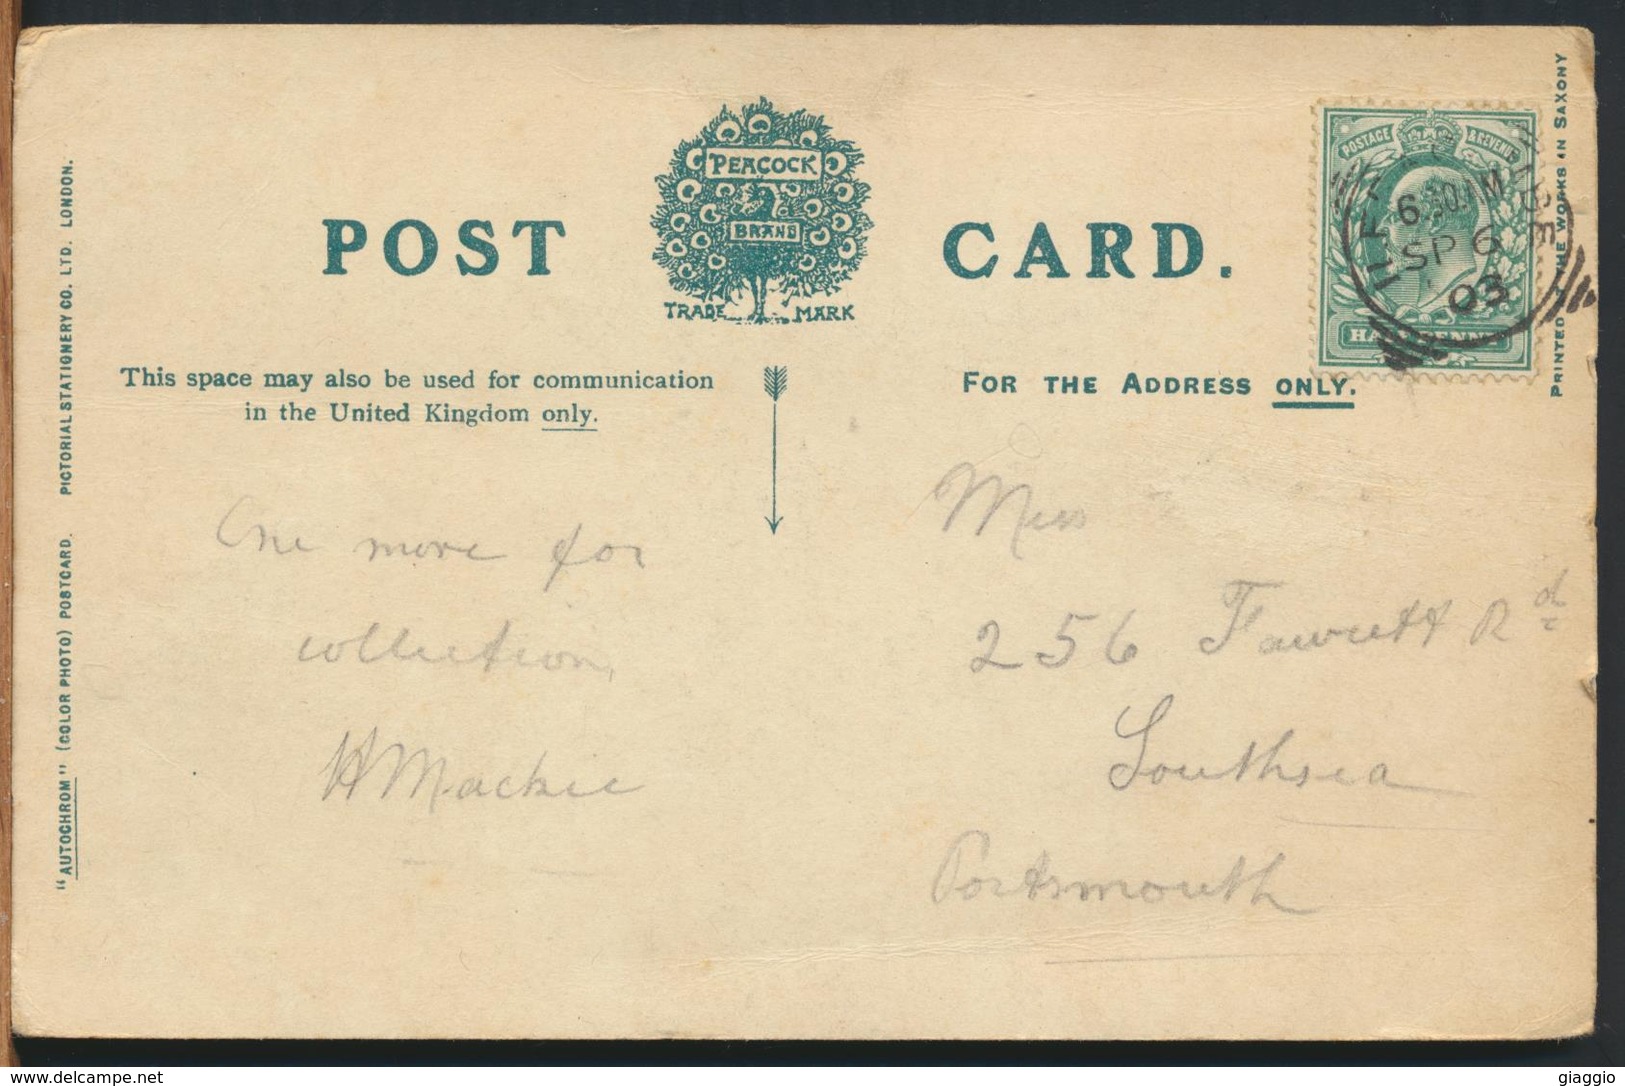 POST CARD.
PEACOCK
BRAND
TRADE MARK
This space may also be used for communication
in the United Kingdom only.
FOR THE ADDRESS ONLY.
"AUTOCHROM" (COLOR PHOTO) POSTCARD. PICTORIAL STATIONERY CO. LTD. LONDON.
PRINTED THE WORKS IN SAXONY
POSTAGE & REVENUE
6.30AM
SP 6
03
One more for
collection,
H Mackie
Miss
256 Fawcett Rd
Southsea
Portsmouth
© delcampe.net
giaggio